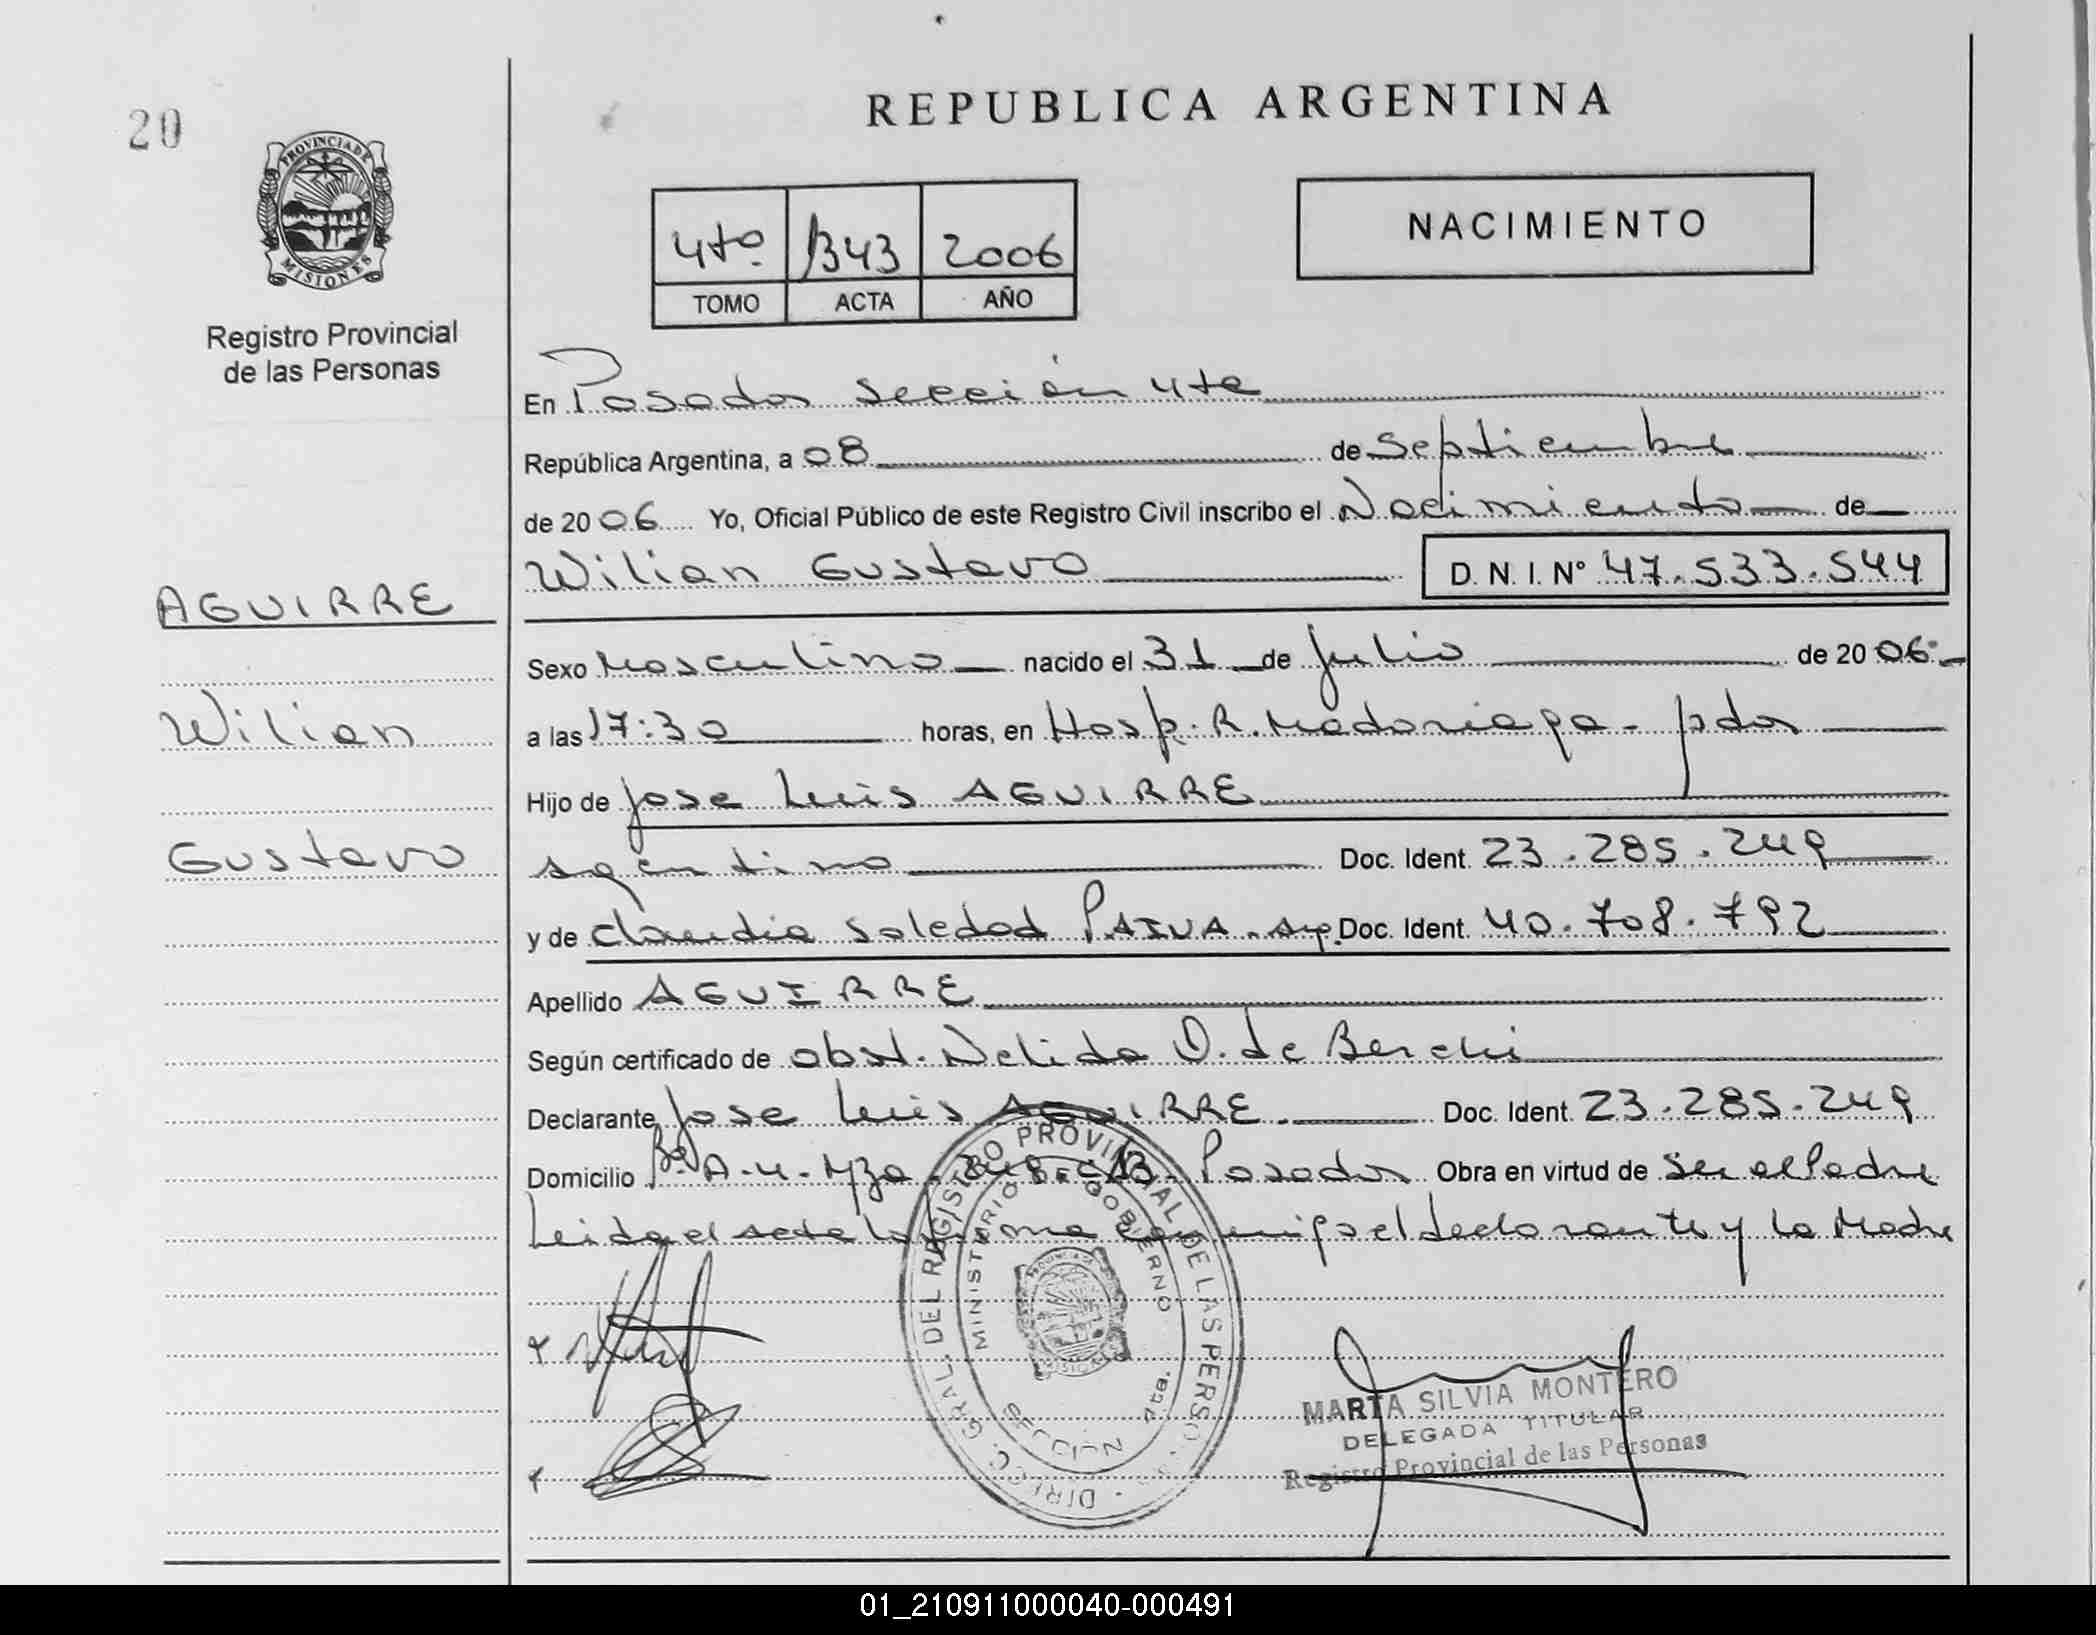 20
REPUBLICA ARGENTINA
PROVINCIA DE
MISIONES
Registro Provincial
de las Personas
4to 1343 2006
TOMO ACTA AÑO
NACIMIENTO
En Posadas Sección 4ta
República Argentina, a 08 de Septiembre
de 2006 Yo, Oficial Público de este Registro Civil inscribo el Nacimiento de
Wilian Gustavo D. N. I. N° 47.533.544
AGUIRRE
Wilian
Gustavo
Sexo Masculino nacido el 31 de julio de 2006.
a las 17:30 horas, en Hosp. R. Madariaga - pdas
Hijo de jose Luis AGUIRRE
argentino Doc. Ident. 23.285.249
y de claudia Soledad PAIVA. arg. Doc. Ident. 40.708.792
Apellido AGUIRRE
Según certificado de obst. Nelida O. de Berchi
Declarante jose Luis AGUIRRE. Doc. Ident. 23.285.249
Domicilio Bº A-4. Mza. Posadas Obra en virtud de Ser el Padre
Leida el acta la firma conmigo el declarante y la Madre
DIRECC. GRAL. DEL REGISTRO PROVINCIAL DE LAS PERSONAS
MINISTERIO GOBIERNO
SECCION 4ta.
MARTA SILVIA MONTERO
DELEGADA TITULAR
Registro Provincial de las Personas
01_210911000040-000491